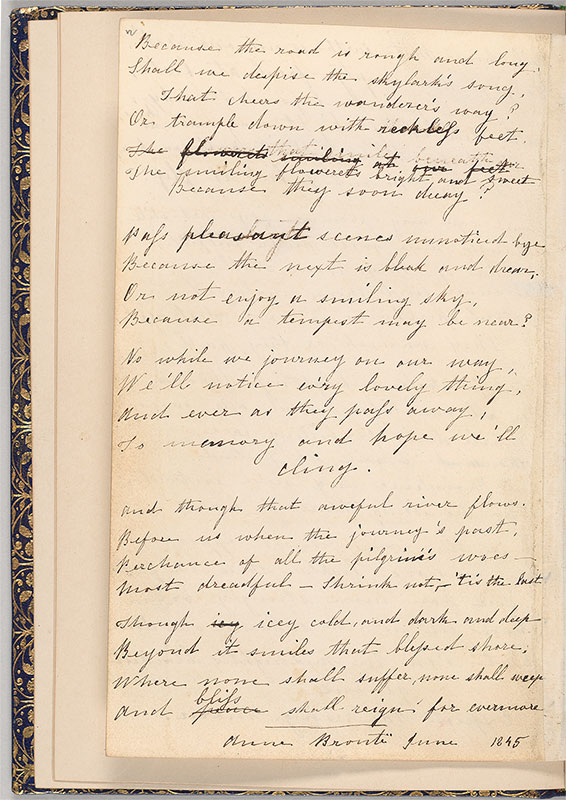 Because the road is rough and long,
Shall we despise the skylark's song,
That cheers the wanderer's way?
Or trample down with reckless feet.
The flowerets smiling at our feet
The smiling flowerets bright and sweet
Because they soon decay?
Pass pleasant scenes unnoticed bye
Because the next is bleak and drear,
Or not enjoy a smiling sky,
Because a tempest may be near?
No while we journey on our way,
We'll notice ev'ry lovely thing,
And ever as they pass away,
To memory and hope we'll
cling.
And though that aweful river flows.
Before us when the journey's past,
Perchance of all the pilgrim's woes —
Most dreadful — Shrink not, — 'tis the last
Though icy icey cold, and dark and deep
Beyond it smiles that blessed shore,
Where none shall suffer, none shall weep
bliss
And peace shall reign for evermore
Anne Brontë June 1845